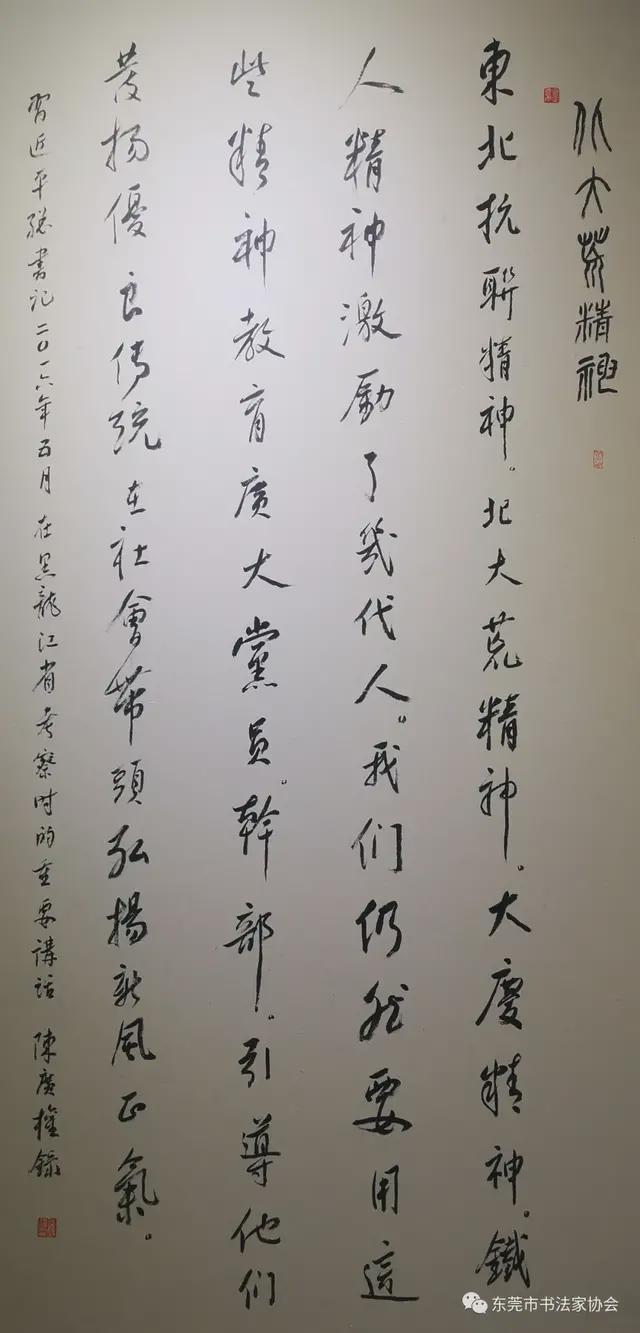 北大荒精神
東北抗聯精神。北大荒精神。大慶精神。鐵
人精神激勵了幾代人。我们仍然要用這
些精神教育廣大黨员。幹部。引導他们
發揚優良傳統在社會帶頭弘揚新風正氣。
習近平總書記二〇一六年五月在黑龍江省考察时的重要講話 陳廣權錄
东莞市书法家协会